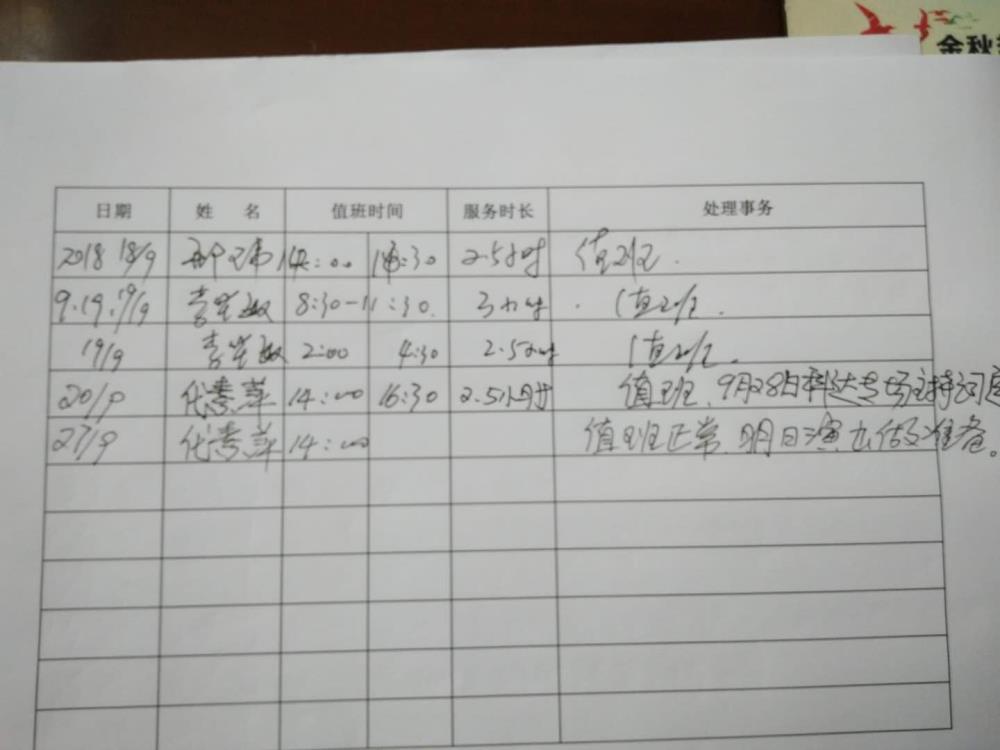 金秋
日期 姓 名 值班时间 服务时长 处理事务
2018 18/9 14:00 16:30 2.5小时 值班.
9.19. 19/9 8:30-11:30. 3小时 值班.
19/9 2:00 4:30 2.5小时 值班.
20/9 代素萍 14:00 16:30 2.5小时 值班, 9月28日科达专场主持词
27/9 代素萍 14:00 值班正常, 明日演出做准备。